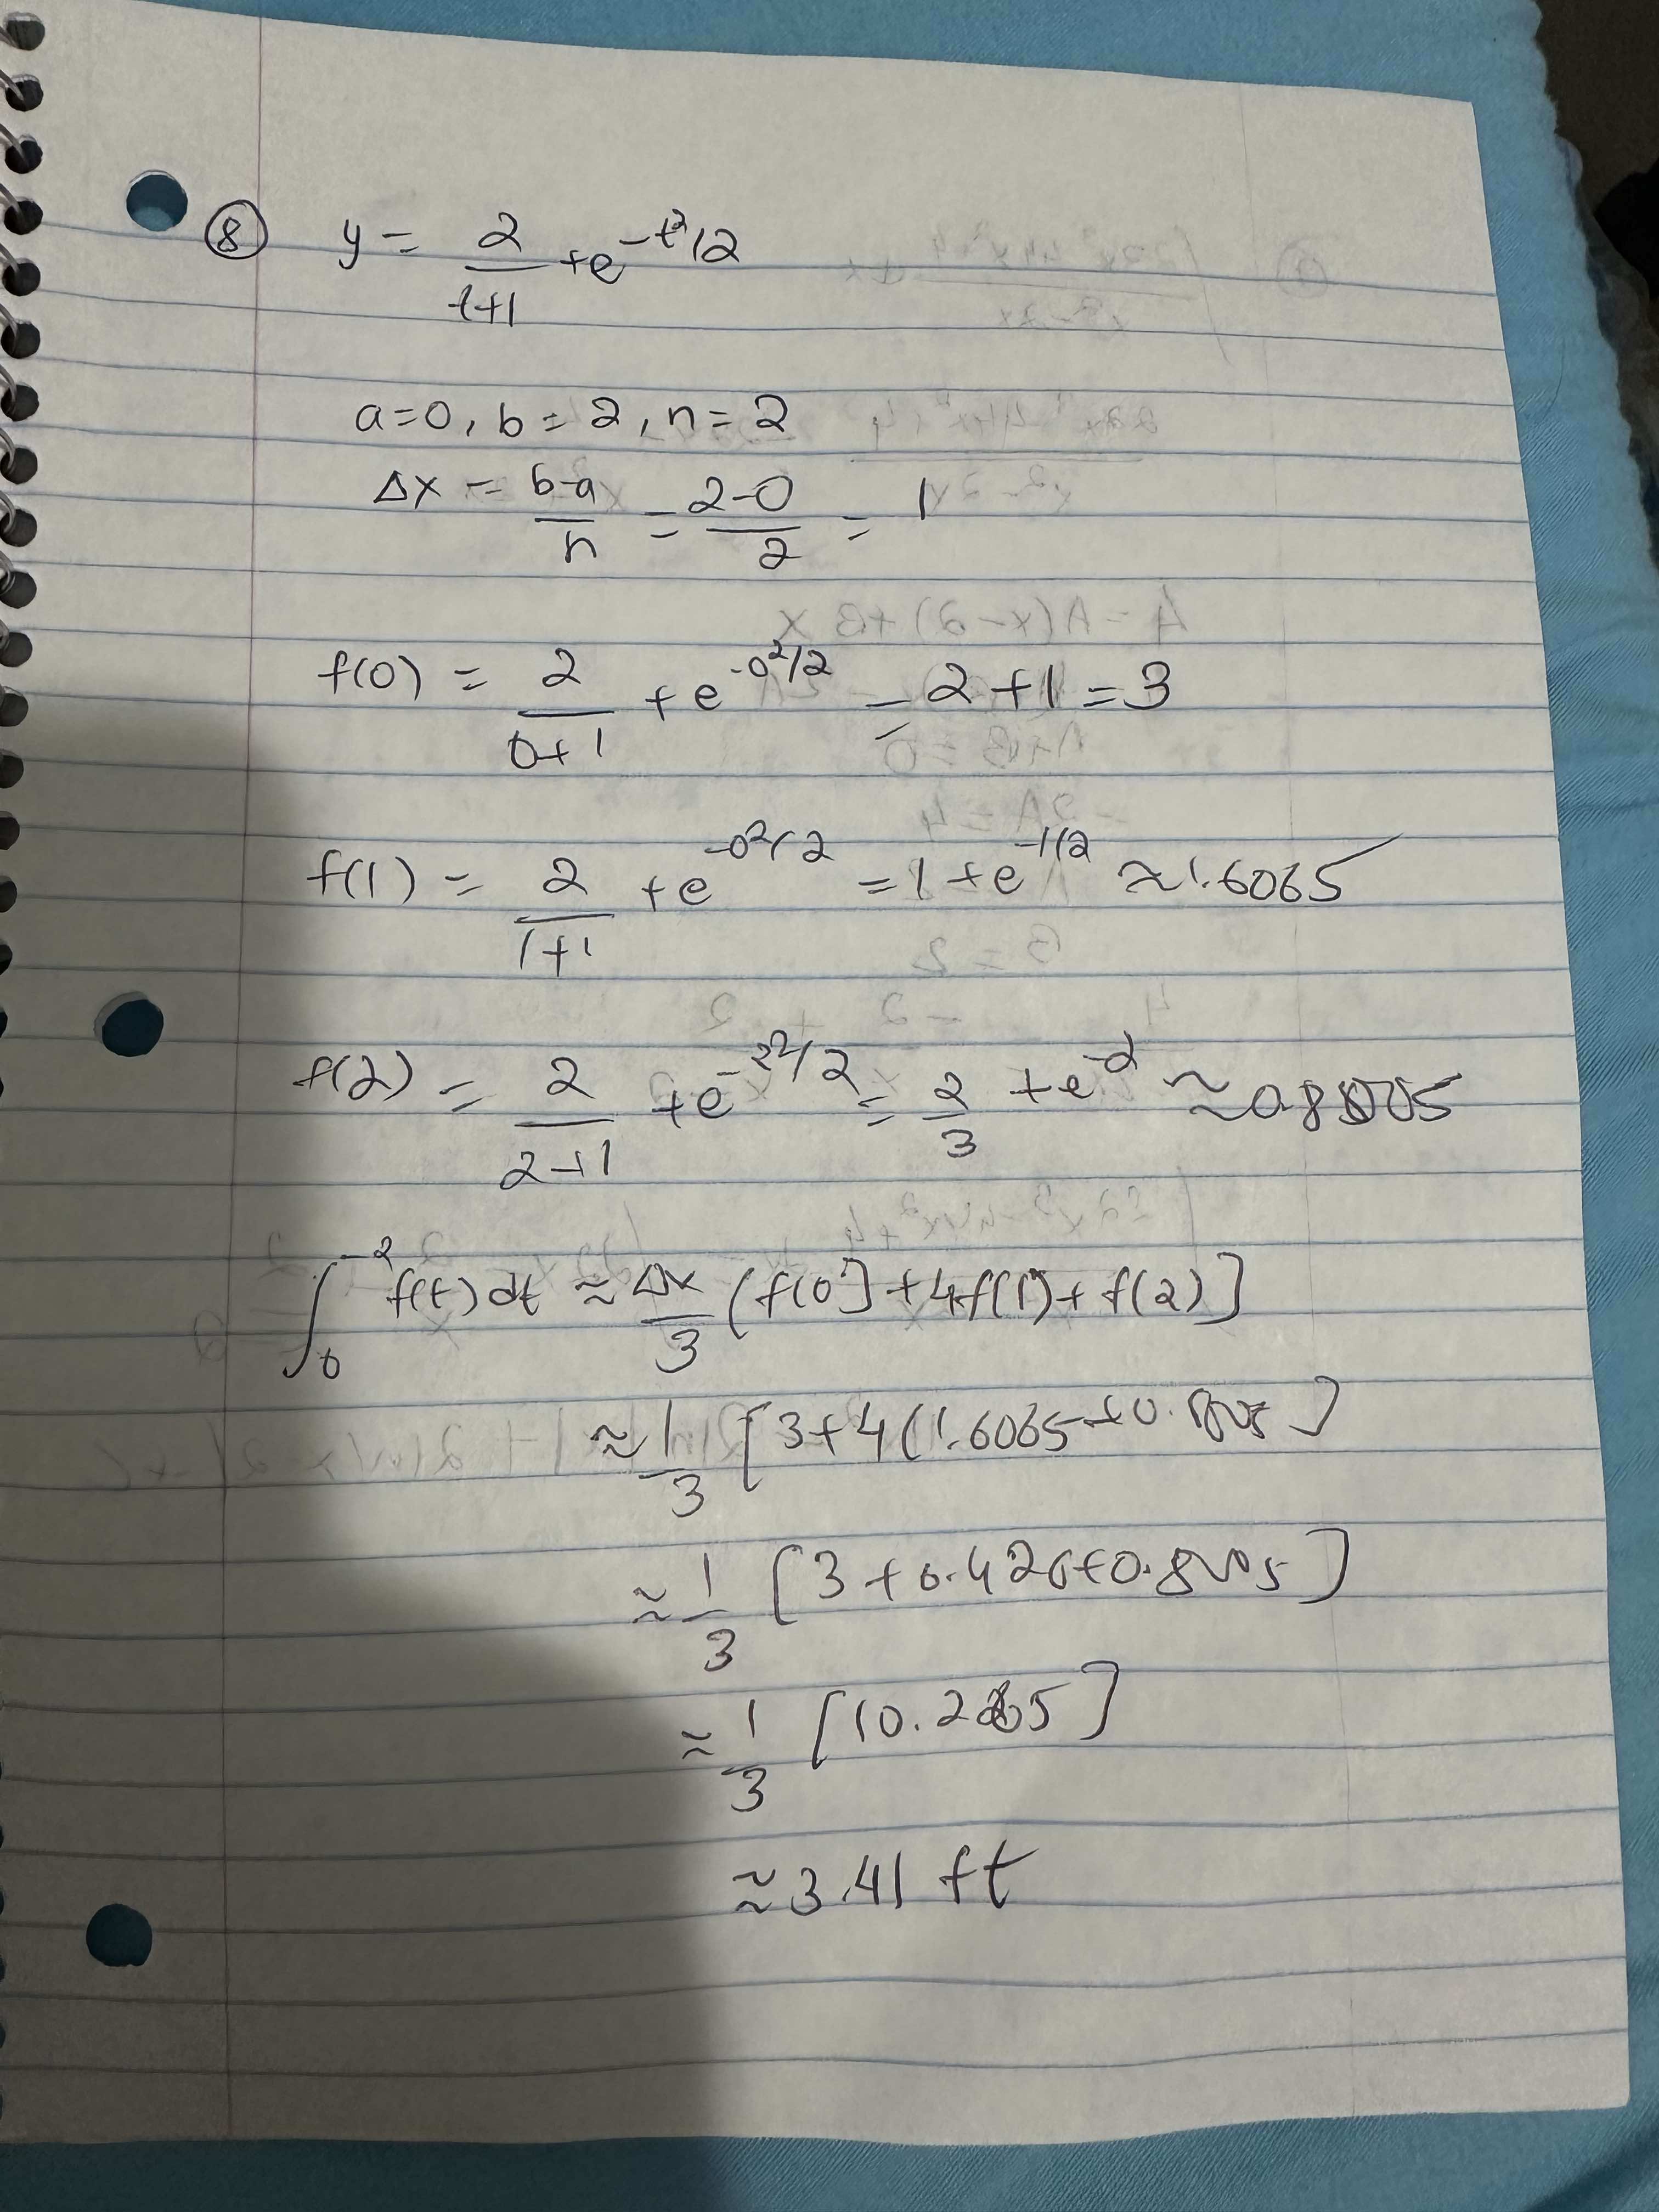 ⑧ y = 2/(t+1) + e^(-t²/2)
a=0, b=2, n=2
Δx = (b-a)/n = (2-0)/2 = 1
f(0) = 2/(0+1) + e^(-0²/2) = 2+1 = 3
f(1) = 2/(1+1) + e^(-0²/2) = 1+e^(-1/2) ≈ 1.6065
f(2) = 2/(2+1) + e^(-2²/2) = 2/3 + e^(-2) ≈
∫₀^(-2) f(t) dt ≈ Δx/3 (f(0] + 4f(1) + f(2)]
≈ 1/3 [3+4(1.6065+
≈ 1/3 [3+6.426+
≈ 1/3 [
≈ 3.41 ft